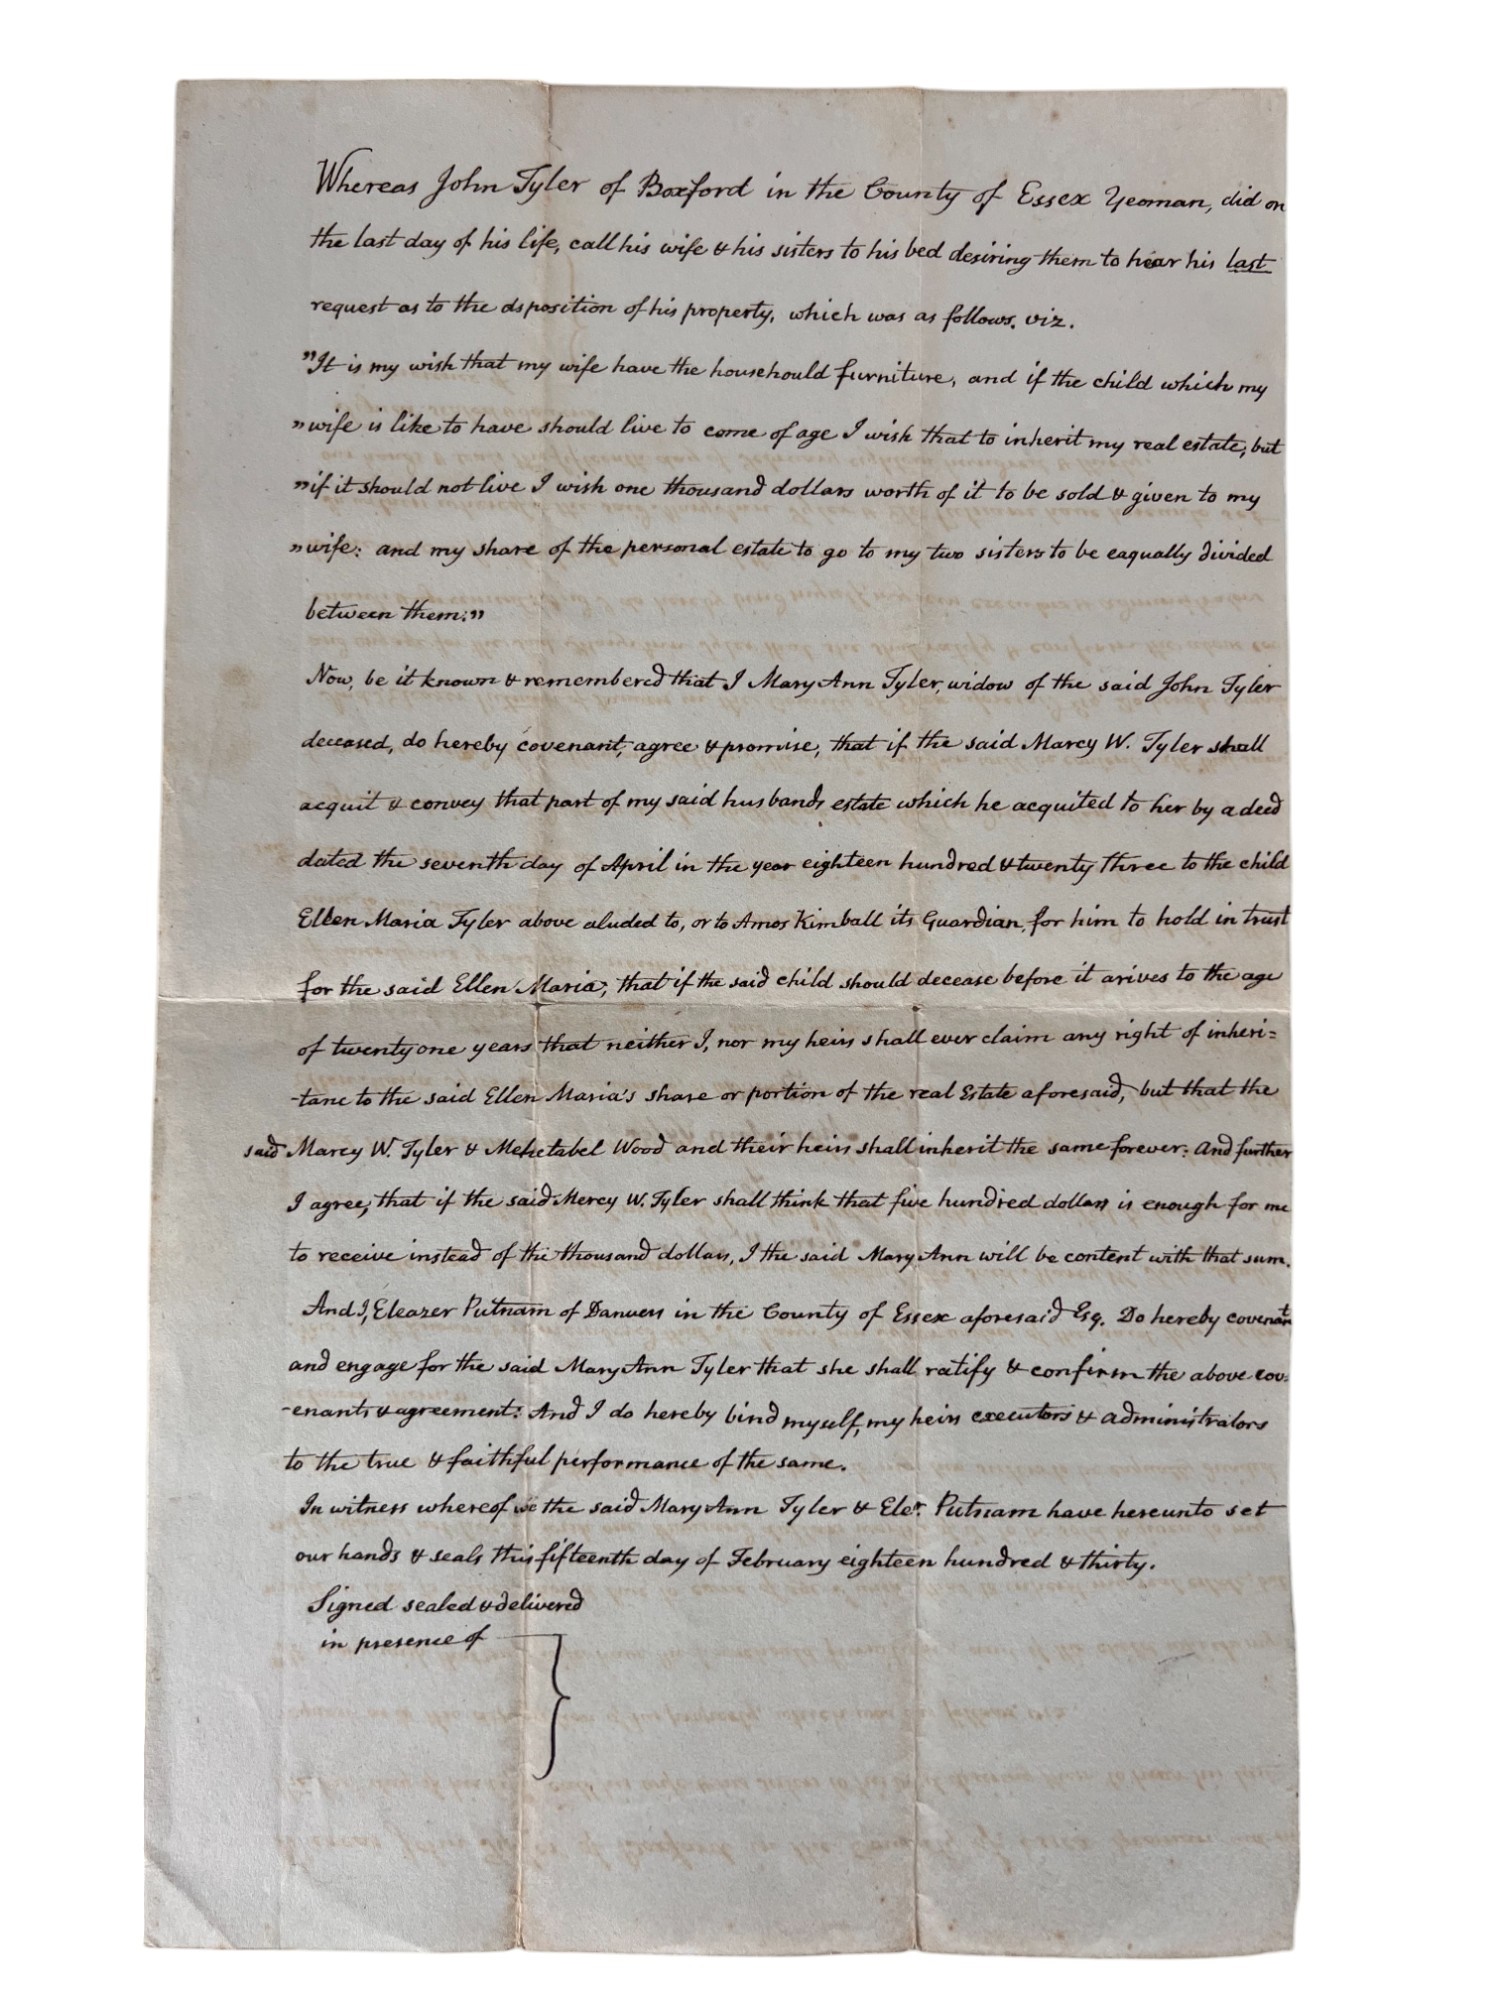 Whereas John Tyler of Boxford in the County of Essex Yeoman, did on
the last day of his life, call his wife & his sisters to his bed desiring them to hear his last
request as to the dsposition of his property, which was as follows. viz.
"It is my wish that my wife have the househould furniture, and if the child which my
"wife is like to have should live to come of age I wish that to inherit my real estate; but
"if it should not live I wish one thousand dollars worth of it to be sold & given to my
"wife: and my share of the personal estate to go to my two sisters to be eaqually divided
between them:"
Now, be it known & remembered that I Mary Ann Tyler, widow of the said John Tyler
deceased, do hereby covenant, agree & promise, that if the said Marcy W. Tyler shall
acquit & convey that part of my said husbands estate which he acquited to her by a deed
dated the seventh day of April in the year eighteen hundred & twenty three to the child
Ellen Maria Tyler above aluded to, or to Amos Kimball its Guardian, for him to hold in trust
for the said Ellen Maria; that if the said child should decease before it arives to the age
of twenty one years that neither I, nor my heirs shall ever claim any right of inheri=
-tanc to the said Ellen Maria's share or portion of the real Estate aforesaid, but that the
said Marcy W. Tyler & Mehetabel Wood and their heirs shall inherit the same forever: And further
I agree, that if the said Mercy W. Tyler shall think that five hundred dollars is enough for me
to receive instead of the thousand dollars, I the said Mary Ann will be content with that sum.
And I, Eleazer Putnam of Danvers in the County of Essex aforesaid Esq. Do hereby covenant
and engage for the said Mary Ann Tyler that she shall ratify & confirm the above cov=
-enants & agreement: And I do hereby bind myself, my heirs executors & administrators
to the true & faithful performance of the same.
In witness whereof we the said Mary Ann Tyler & Eler. Putnam have hereunto set
our hands & seals this fifteenth day of February eighteen hundred & thirty.
Signed sealed & delivered
in presence of